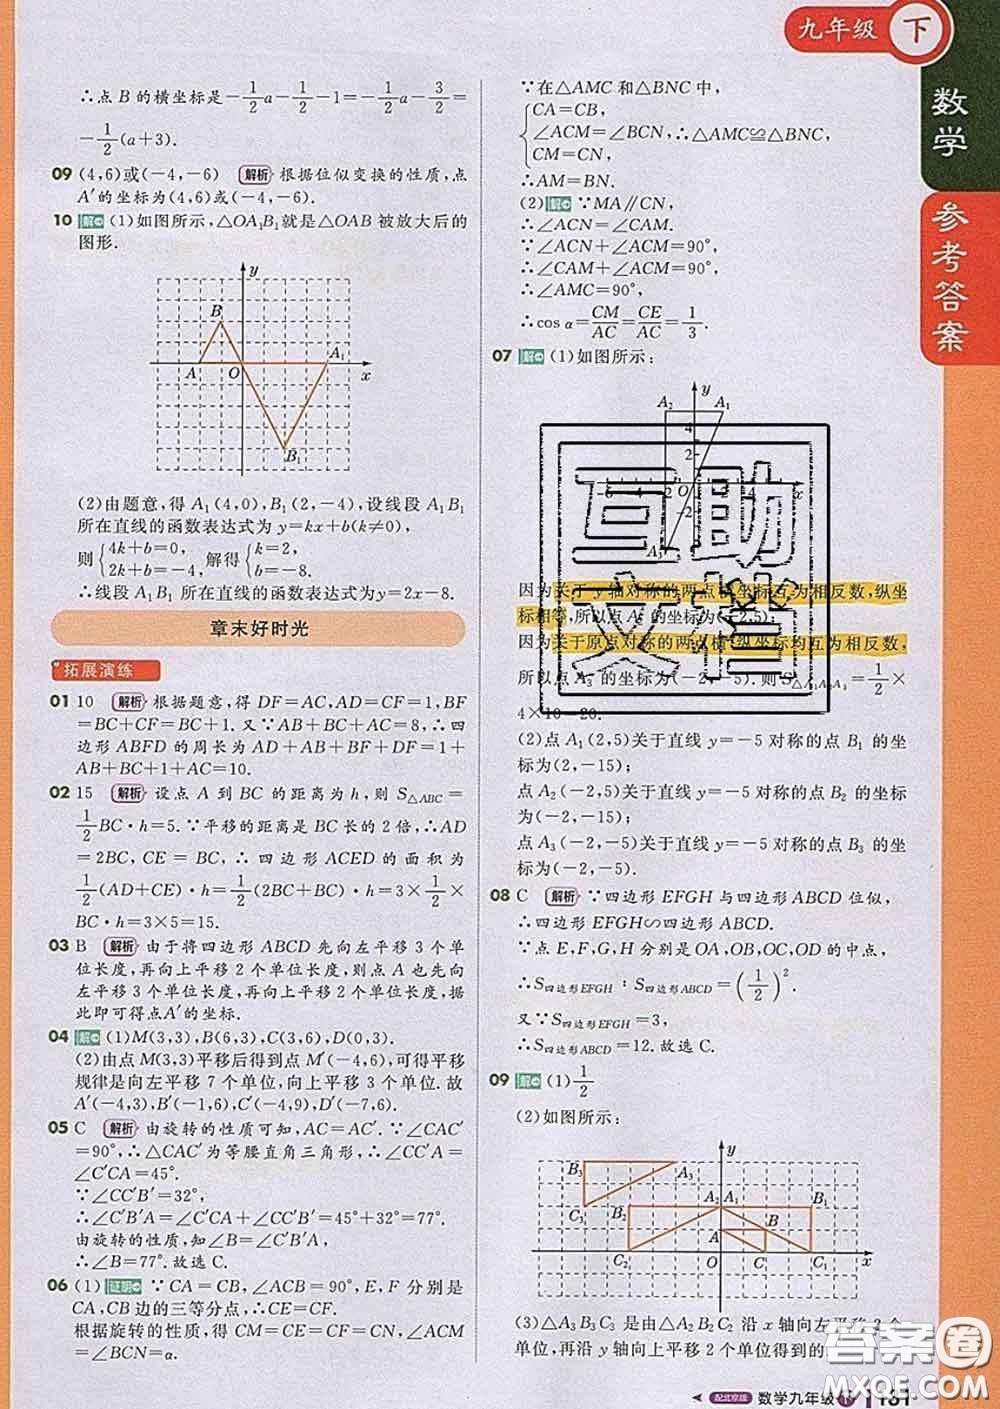 九年级 下
数学
参考答案
∴点 B 的横坐标是−1/2a−1/2−1=−1/2a−3/2=
−1/2(a+3).
09 (4,6)或(−4,−6) 解析 根据位似变换的性质,点
A′的坐标为(4,6)或(−4,−6).
10 解 (1)如图所示,△OA₁B₁就是△OAB 被放大后的
图形.
y
B
A₁
A O x
B₁
(2)由题意,得 A₁(4,0),B₁(2,−4),设线段 A₁B₁
所在直线的函数表达式为 y=kx+b(k≠0),
则{4k+b=0, 2k+b=−4. 解得{k=2, b=−8.
∴线段 A₁B₁ 所在直线的函数表达式为y=2x−8.
章末好时光
拓展演练
01 10 解析 根据题意,得 DF=AC,AD=CF=1,BF
=BC+CF=BC+1. 又∵AB+BC+AC=8,∴四
边形 ABFD 的周长为 AD+AB+BF+DF=1+
AB+BC+1+AC=10.
02 15 解析 设点 A 到 BC 的距离为 h,则 S△ABC=
1/2BC·h=5.∵平移的距离是 BC 长的 2 倍,∴AD
=2BC,CE=BC,∴四边形 ACED 的面积为
1/2(AD+CE)·h=1/2(2BC+BC)·h=3×1/2×
BC·h=3×5=15.
03 B 解析 由于将四边形 ABCD 先向左平移 3 个单
位长度,再向上平移 2 个单位长度,则点 A 也先向
左平移 3 个单位长度,再向上平移 2 个单位长度,据
此即可得点A′的坐标.
04 解 (1)M(3,3),B(6,3),C(3,6),D(0,3).
(2)由点 M(3,3)平移后得到点 M′(−4,6),可得平移
规律是向左平移 7 个单位,向上平移 3 个单位. 故
A′(−4,3),B′(−1,6),C′(−4,9),D′(−7,6).
05 C 解析 由旋转的性质可知,AC=AC′.∵∠CAC′
=90°,∴△CAC′为等腰直角三角形,∴∠CC′A=
∠C′CA=45°.
∵∠CC′B′=32°,
∴∠C′B′A=∠C′CA+∠CC′B′=45°+32°=77°.
由旋转的性质,得∠B=∠C′B′A,
∴∠B=77°. 故选 C.
06 (1) 证明 ∵CA=CB,∠ACB=90°,E,F 分别是
CA,CB 边的三等分点,∴CE=CF.
根据旋转的性质,得 CM=CE=CF=CN,∠ACM=
∠BCN=α.
∵在△AMC 和△BNC 中,
{CA=CB,
∠ACM=∠BCN,∴△AMC≌△BNC,
CM=CN,
∴AM=BN.
(2) 解 ∵MA∥CN,
∴∠ACN=∠CAM.
∵∠ACN+∠ACM=90°,
∴∠CAM+∠ACM=90°,
∴∠AMC=90°.
∴cos α=CM/AC=CE/AC=1/3.
07 解 (1)如图所示:
y
A₂ A₁
4
2
−6 −2 O x
−2
A₃
互助
文档
因为关于 y 轴对称的两点横坐标互为相反数,纵坐
标相等,所以点 A₂ 的坐标为(−2,5);
因为关于原点对称的两点横、纵坐标均互为相反数,
所以点 A₃ 的坐标为(−2,−5). 则 S△A₁A₂A₃=1/2×
4×10=20.
(2)点 A₁(2,5)关于直线 y=−5 对称的点 B₁ 的坐
标为(2,−15);
点 A₂(−2,5)关于直线 y=−5 对称的点 B₂ 的坐标
为(−2,−15);
点 A₃(−2,−5)关于直线 y=−5 对称的点 B₃ 的坐
标为(−2,−5).
08 C 解析 ∵四边形 EFGH 与四边形 ABCD 位似,
∴四边形 EFGH∽四边形 ABCD.
∵点 E,F,G,H 分别是 OA,OB,OC,OD 的中点,
∴S四边形EFGH:S四边形ABCD=(1/2)².
又∵S四边形EFGH=3,
∴S四边形ABCD=12. 故选 C.
09 解 (1)1/2
(2)如图所示:
y
B₃ A₃
C₃ B₂ A₂ A₁ B₁
A B
C₂ O C C₁ x
(3)△A₃B₃C₃ 是由△A₂B₂C₂ 沿 x 轴向左平移 2 个
单位,再沿 y 轴向上平移 2 个单位得到的
答案圈
配北京版 数学九年级 下 131